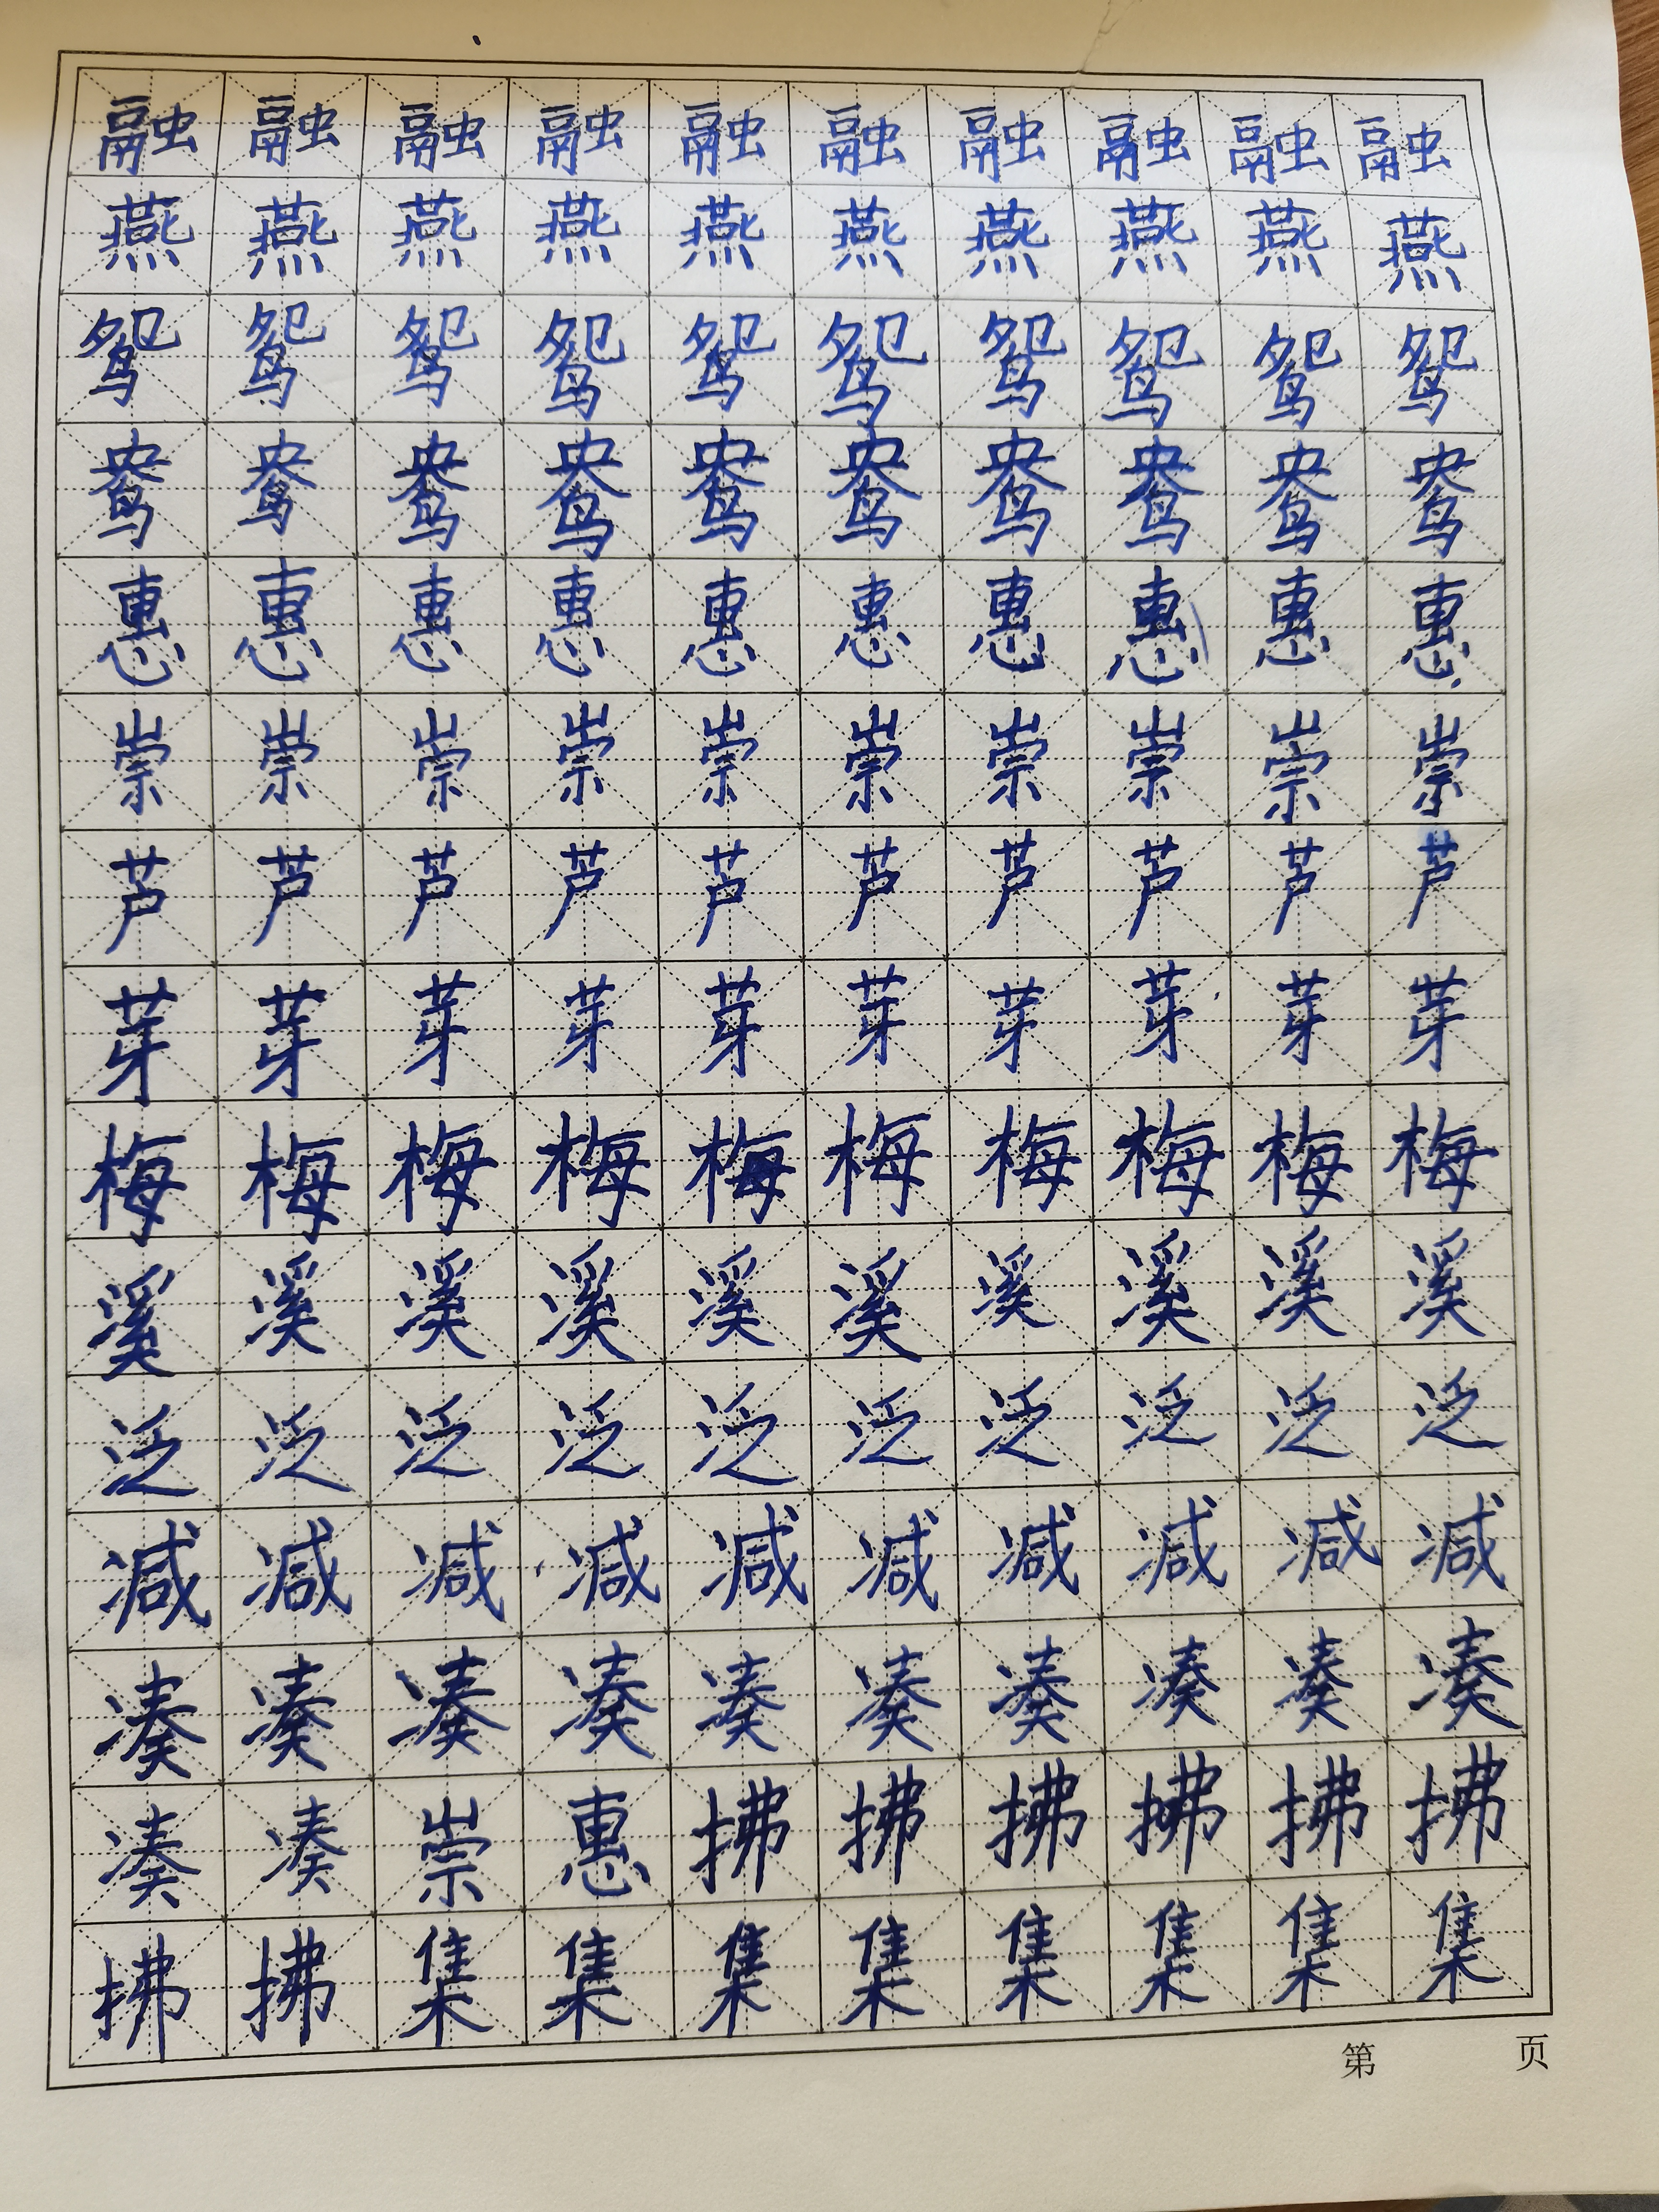 融融融融融融融融融融
燕燕燕燕燕燕燕燕燕燕
鸳鸳鸳鸳鸳鸳鸳鸳鸳鸳
鸯鸯鸯鸯鸯鸯鸯鸯鸯鸯
惠惠惠惠惠惠惠惠惠惠
崇崇崇崇崇崇崇崇崇崇
芦芦芦芦芦芦芦芦芦芦
芽芽芽芽芽芽芽芽芽芽
梅梅梅梅梅梅梅梅梅梅
溪溪溪溪溪溪溪溪溪溪
泛泛泛泛泛泛泛泛泛泛
减减减减减减减减减减
凑凑凑凑凑凑凑凑凑凑
凑凑崇惠拂拂拂拂拂拂
拂拂集集集集集集集集
第 页